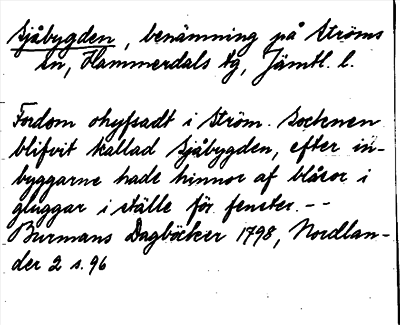 Sjåbygden, benämning på Ströms
sn, Hammerdals tg, Jämtl. l.
Fordom ohyfsadt i Ström. Socknen
blifvit kallad Sjåbygden, efter in-
byggarne hade hinnor af blåsor i
gluggar i ställe för fenster. --
Burmans Dagböcker 1798, Nordlan-
der 2 s. 96